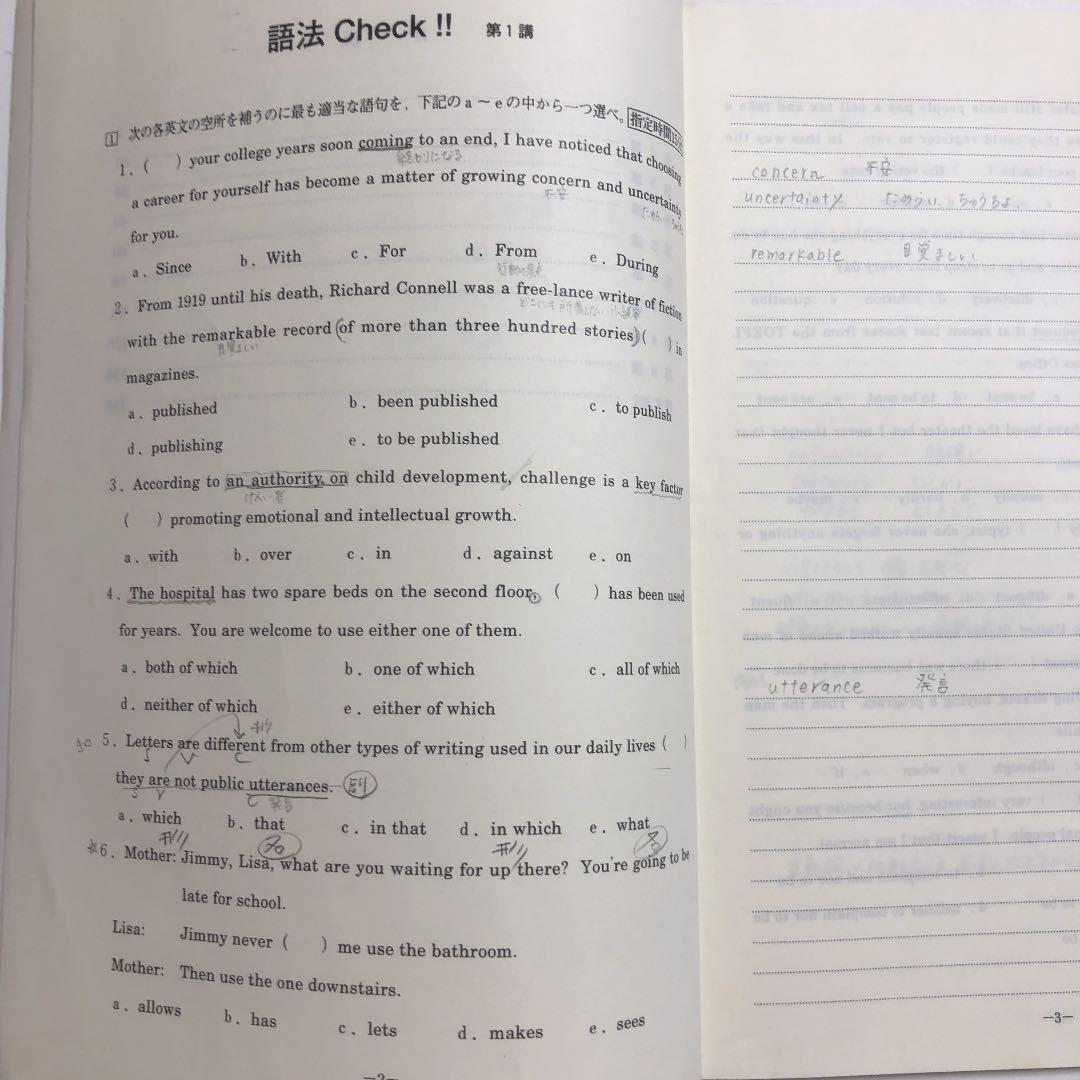 語法 Check !! 第1講
1 次の各英文の空所を補うのに最も適当な語句を,下記のa～eの中から一つ選べ。 指定時間15
1. ( ) your college years soon coming to an end, I have noticed that choosing
終わりになる
a career for yourself has become a matter of growing concern and uncertainty
不安
for you.
a. Since b. With c. For d. From e. During
2. From 1919 until his death, Richard Connell was a free-lance writer of fiction
with the remarkable record (of more than three hundred stories) ( ) in
目覚ましい
magazines.
a. published b. been published c. to publish
d. publishing e. to be published
3. According to an authority on child development, challenge is a key factor
けんい者
( ) promoting emotional and intellectual growth.
a. with b. over c. in d. against e. on
4. The hospital has two spare beds on the second floor, ( ) has been used
for years. You are welcome to use either one of them.
a. both of which b. one of which c. all of which
d. neither of which e. either of which
5. Letters are different from other types of writing used in our daily lives ( )
S V C
they are not public utterances. 副
S V C 発言
a. which b. that c. in that d. in which e. what
*6. Mother: Jimmy, Lisa, what are you waiting for up there? You're going to be
late for school.
Lisa: Jimmy never ( ) me use the bathroom.
Mother: Then use the one downstairs.
a. allows b. has c. lets d. makes e. sees
—2—
concern 不安
uncertainty ためらい ちゅうちょ
remarkable 目覚ましい
utterance 発言
—3—